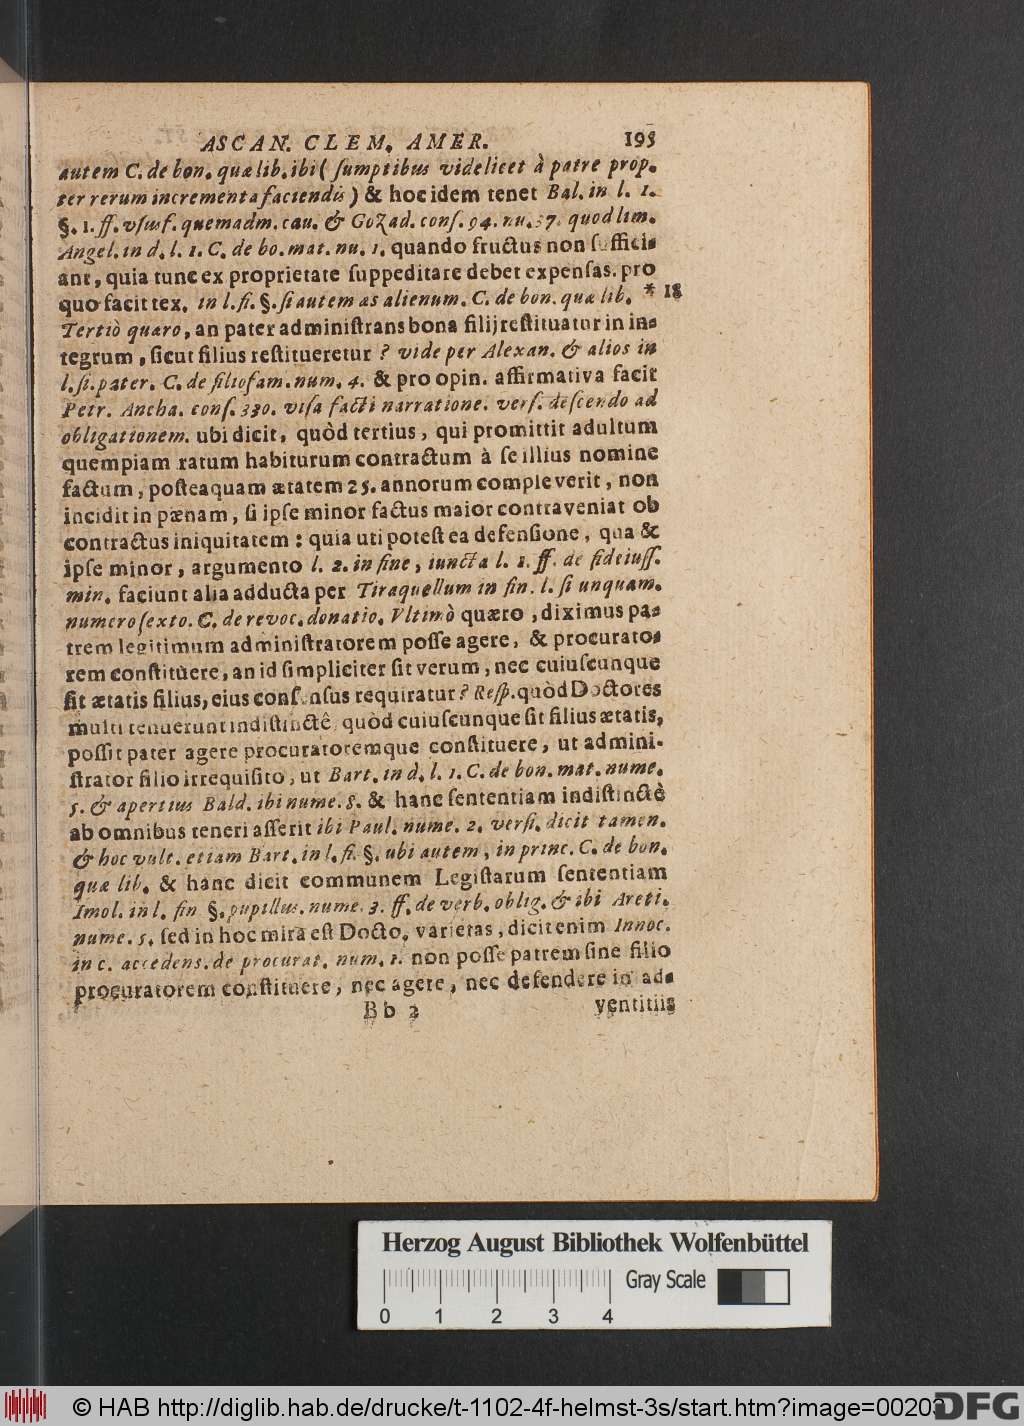 ASCAN. CLEM. AMER. 195
autem C. de bon. quæ lib. ibi ( ſumptibus videlicet à patre prop-
ter rerum incrementa faciendis ) & hoc idem tenet Bal. in l. 1.
§. 1. ff. vſuſ. quemadm. cau. & Gozad. conſ. 94. nu. 37. quod lim.
Angel. in d. l. 1. C. de bo. mat. nu. 1. quando fructus non ſuffici-
ant, quia tunc ex proprietate ſuppeditare debet expenſas. pro
quo facit tex. in l. fi. §. ſi autem æs alienum. C. de bon. quæ lib. * 18
Tertiò quæro, an pater adminiſtrans bona filij reſtituatur in in-
tegrum, ſicut filius reſtitueretur ? vide per Alexan. & alios in
l. ſi. pater. C. de filiofam. num. 4. & pro opin. affirmativa facit
Petr. Ancha. conſ. 330. viſa facti narratione. verſ. deſcendo ad
obligationem. ubi dicit, quòd tertius, qui promittit adultum
quempiam ratum habiturum contractum à ſe illius nomine
factum, poſteaquam ætatem 25. annorum compleverit, non
incidit in pænam, ſi ipſe minor factus maior contraveniat ob
contractus iniquitatem : quia uti poteſt ea defenſione, qua &
ipſe minor, argumento l. 2. in fine, iuncta l. 1. ff. de fideiuſſ.
min. faciunt alia adducta per Tiraquellum in fin. l. ſi unquam.
numero ſexto. C. de revoc. donatio. Vltimò quæro, diximus pa-
trem legitimum adminiſtratorem poſſe agere, & procurato-
rem conſtituere, an id ſimpliciter ſit verum, nec cuiuſcunque
ſit ætatis filius, eius conſenſus requiratur ? Reſp. quòd Doctores
multi tenuerunt indiſtinctè quòd cuiuſcunque ſit filius ætatis,
poſſit pater agere procuratoremque conſtituere, ut admini-
ſtrator filio irrequiſito, ut Bart. in d. l. 1. C. de bon. mat. nume.
5. & apertius Bald. ibi nume. 8. & hanc ſententiam indiſtinctè
ab omnibus teneri aſſerit ibi Paul. nume. 2. verſi. dicit tamen.
& hoc vult. etiam Bart. in l. fi. §. ubi autem, in princ. C. de bon.
quæ lib. & hanc dicit communem Legiſtarum ſententiam
Imol. in l. fin §. pupillus. nume. 3. ff. de verb. oblig. & ibi Areti.
nume. 5. ſed in hoc mira eſt Docto. varietas, dicit enim Innoc.
in c. accedens. de procurat. num. 1. non poſſe patrem ſine filio
procuratorem conſtituere, nec agere, nec defendere in ad-
Bb 2 ventitiis
Herzog August Bibliothek Wolfenbüttel
0 1 2 3 4 Gray Scale
© HAB http://diglib.hab.de/drucke/t-1102-4f-helmst-3s/start.htm?image=00203 DFG